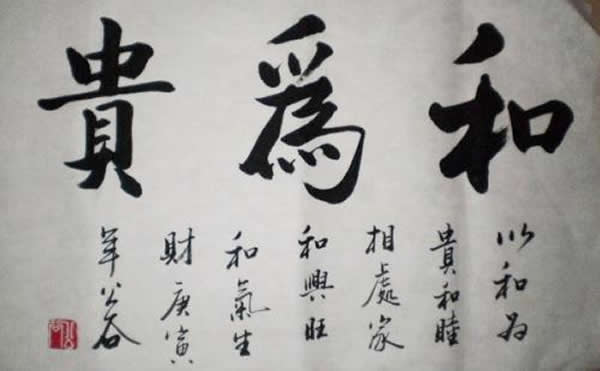 和為貴
以和为
貴和睦
相處家
和興旺
和氣生
財庚寅
年公谷